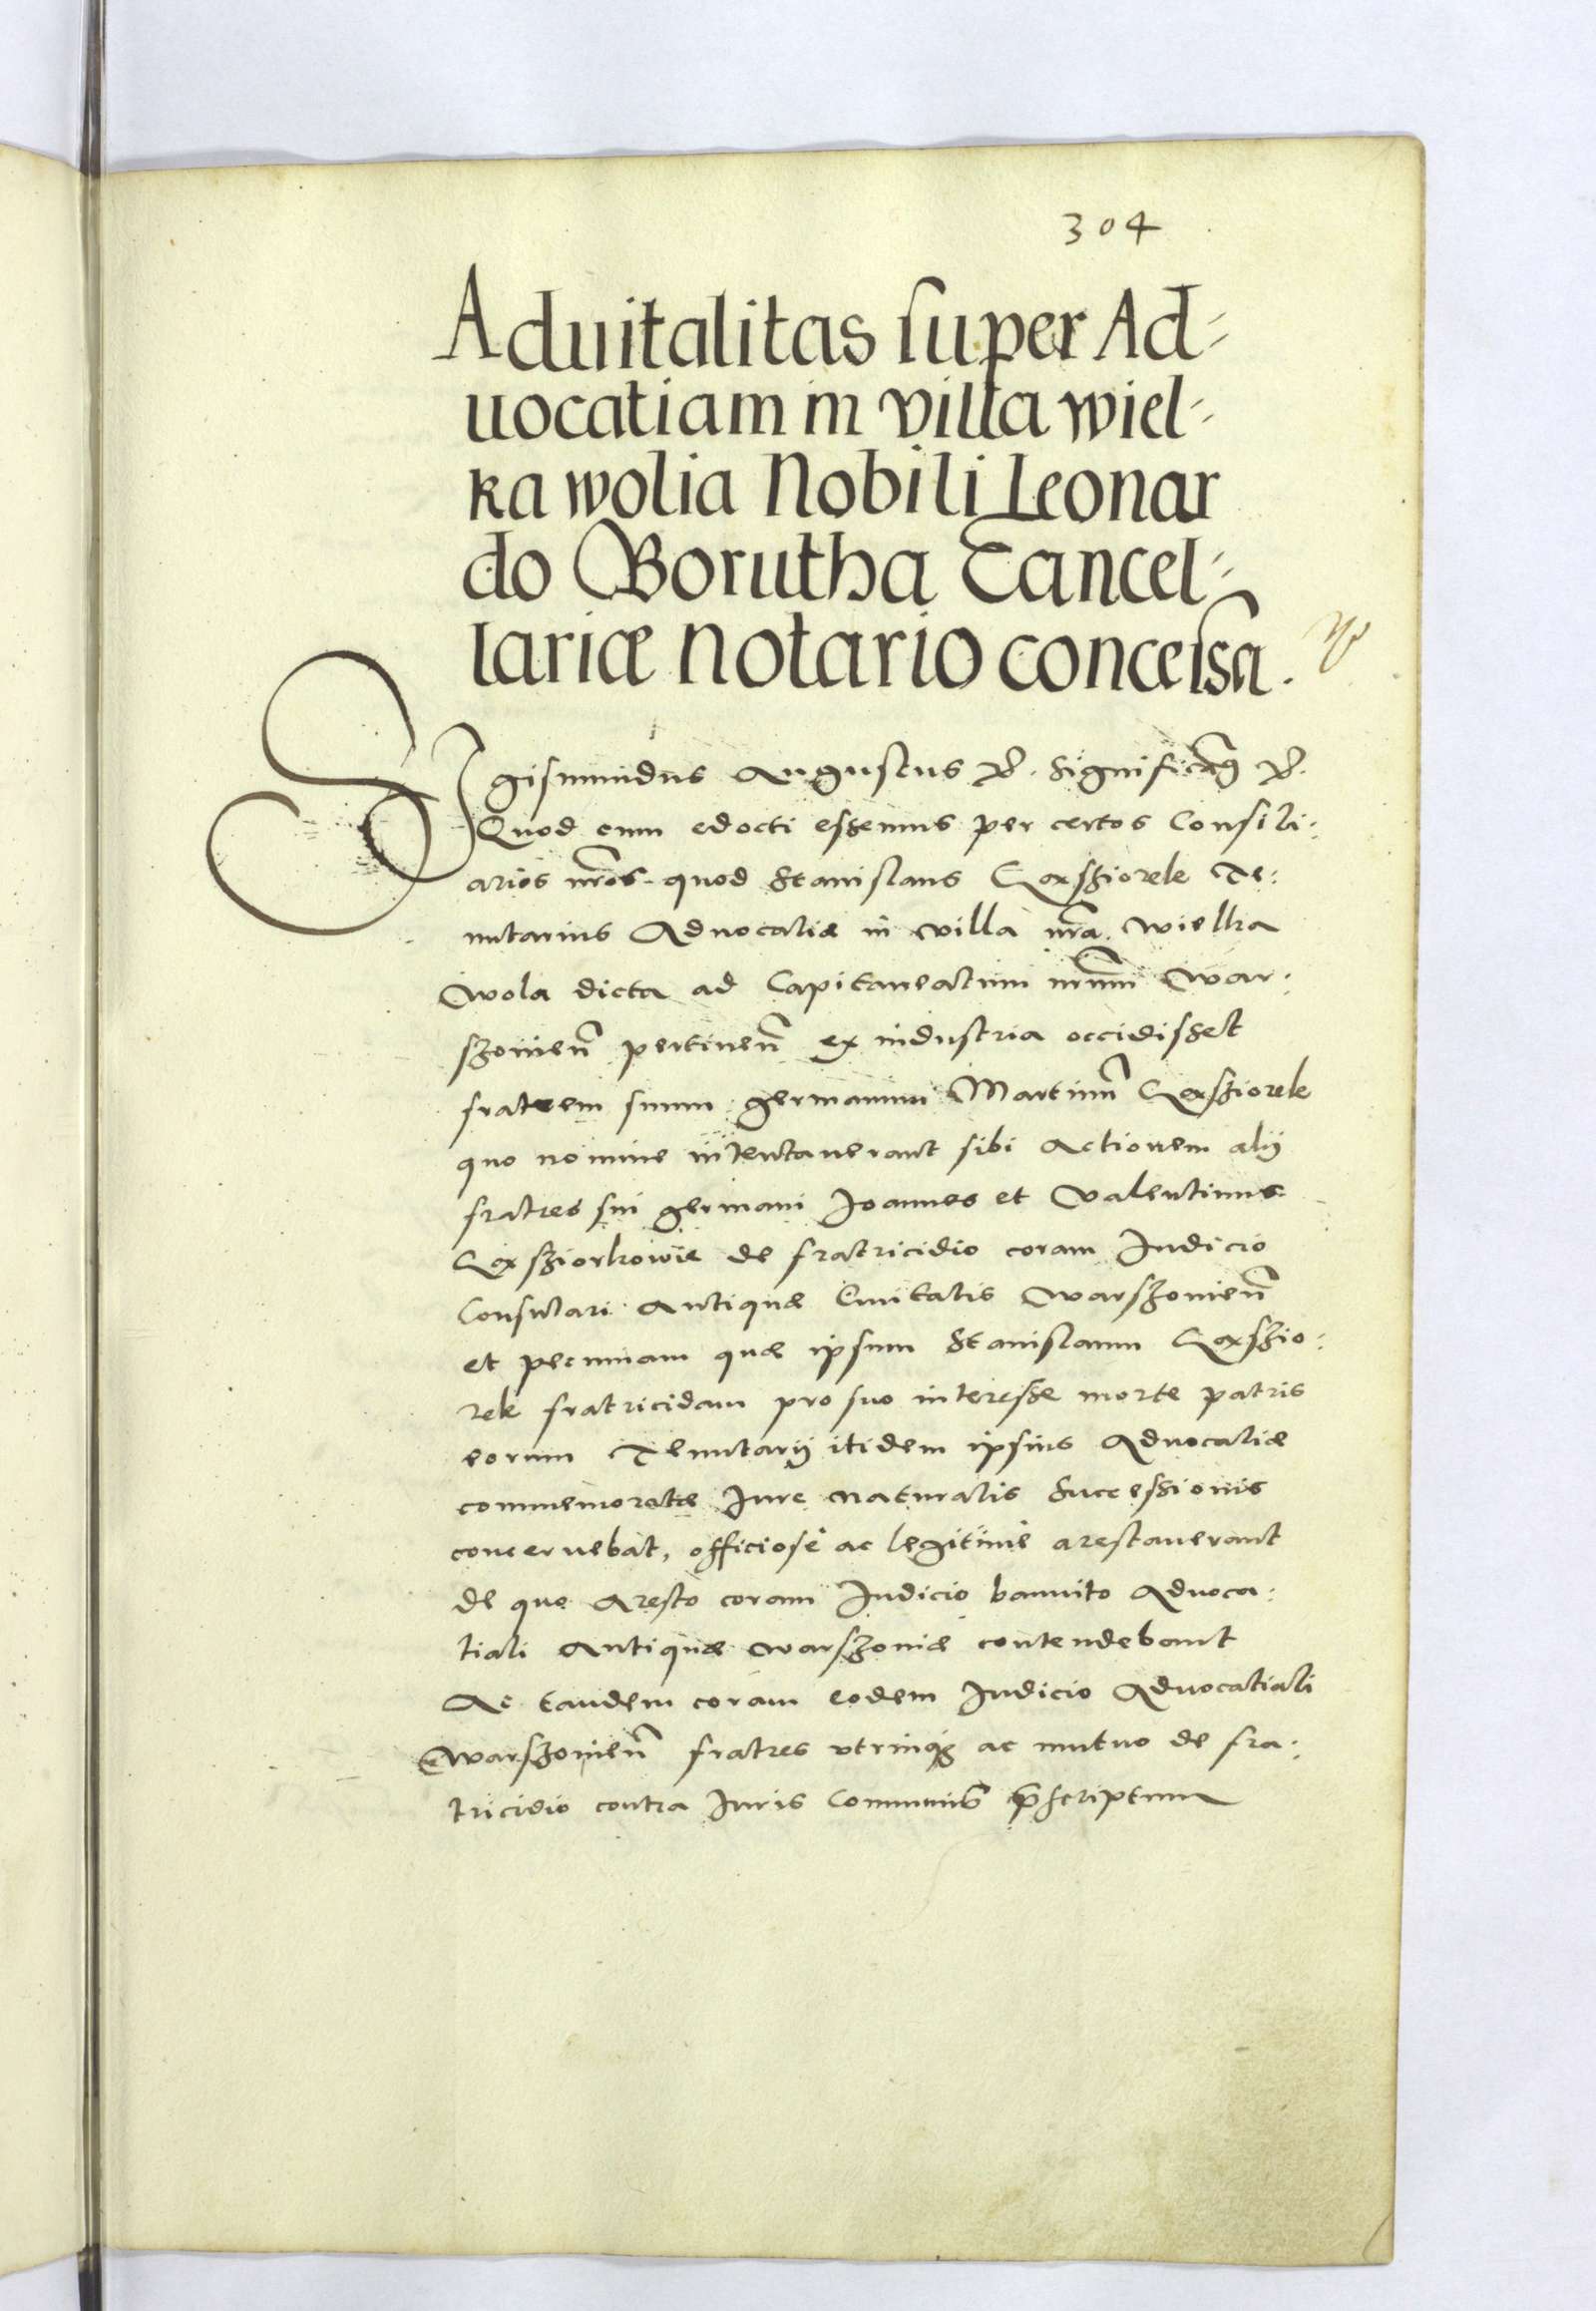 304
Aduitalitas super Ad-
uocatiam in villa wiel-
ka wolia Nobili Leonar
do Borutha Cancel-
lariæ notario concessa.
Sigismundus Augustus &c. Significamus &c.
Quod cum edocti essemus per certos Consili:
arios nros quod Stanislaus Cexsziorek Te:
nutarius Aduocatiæ in villa nra wielka
Wola dicta ad Capitaneatum nrum War:
szouien pertinen ex industria occidisset
fratrem suum germanum Martinum Cexsziorek
quo nomine intentauerant sibi actionem alij
fratres sui germani Joannes et Valentinus
Cexsziorkowie de fratricidio coram Judicio
Consulari Antiquæ Ciuitatis Warszouien
et pecuniam quæ ipsum Stanislaum Cexszio:
rek fratricidam pro suo interesse morte patris
eorum Tenutarij itidem ipsius Aduocatiæ
commemoratæ Jure naturalis Successionis
concernebat, officiose ac legitime arestauerant
de quo Aresto coram Judicio bannito Aduoca:
tiali Antiquæ warszouiæ contendebant
Ac tandem coram eodem Judicio Aduocatiali
Warszouien fratres vtrinq ac mutuo de fra:
tricidio contra Juris Communis pscriptum